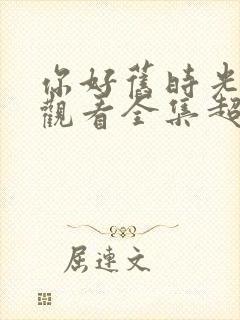 你好舊時光
觀看全集超
屈連文